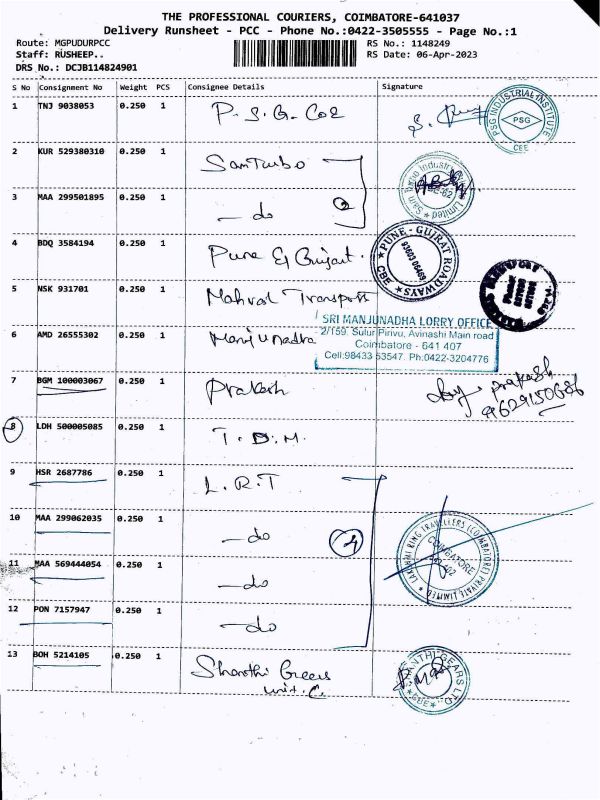 THE PROFESSIONAL COURIERS, COIMBATORE-641037
Delivery Runsheet - PCC - Phone No.:0422-3505555 - Page No.:1
Route: MGPUDURPCC
RS No.: 1148249
Staff: RUSHEEP..
RS Date: 06-Apr-2023
DRS No.: DCJB114824901
S No Consignment No Weight PCS Consignee Details Signature
1 TNJ 9038053 0.250 1 P.S.G. COE
PSG INDUSTRIAL INSTITUTE PSG CBE
2 KUR 529380310 0.250 1 Sam Turbo
3 MAA 299501895 0.250 1 - do 2
Sam Turbo Industry Limited
4 BDQ 3584194 0.250 1 Pune & Gujrat.
PUNE - GUJRAT ROADWAYS CBE 93603 06469
5 NSK 931701 0.250 1 Mahval Transport
SRI MANJUNADHA LORRY OFFICE
6 AMD 26555302 0.250 1 Manjunadha
2/159. Sulur Pirivu, Avinashi Main road
Coimbatore - 641 407
Cell:98433 63547. Ph:0422-3204776
7 BGM 100003067 0.250 1 Prakash
prakash
9629150686
8 LDH 500005085 0.250 1 T.D.M.
9 HSR 2687786 0.250 1 L.R.T
10 MAA 299062035 0.250 1 - do 4
11 MAA 569444054 0.250 1 - do
LAKSHMI RING TRAVELLERS (COIMBATORE) PRIVATE LIMITED COIMBATORE
12 PON 7157947 0.250 1 - do
13 BOH 5214105 0.250 1 Shanthi Gears
unit. C.
SHANTHI GEARS LTD CBE